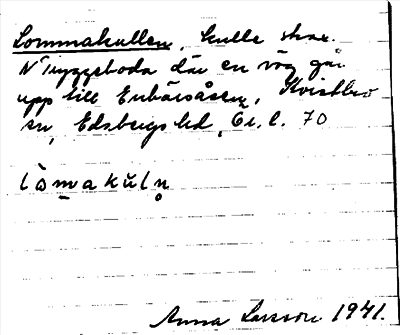 Lommakullen, kulle strax
N Tryggeboda där en väg går
upp till Enbärsåsen, Kvistbro
sn, Edsbergs hd, Ör. l. 70
lòmakùln̥
Anna Larsson 1941.